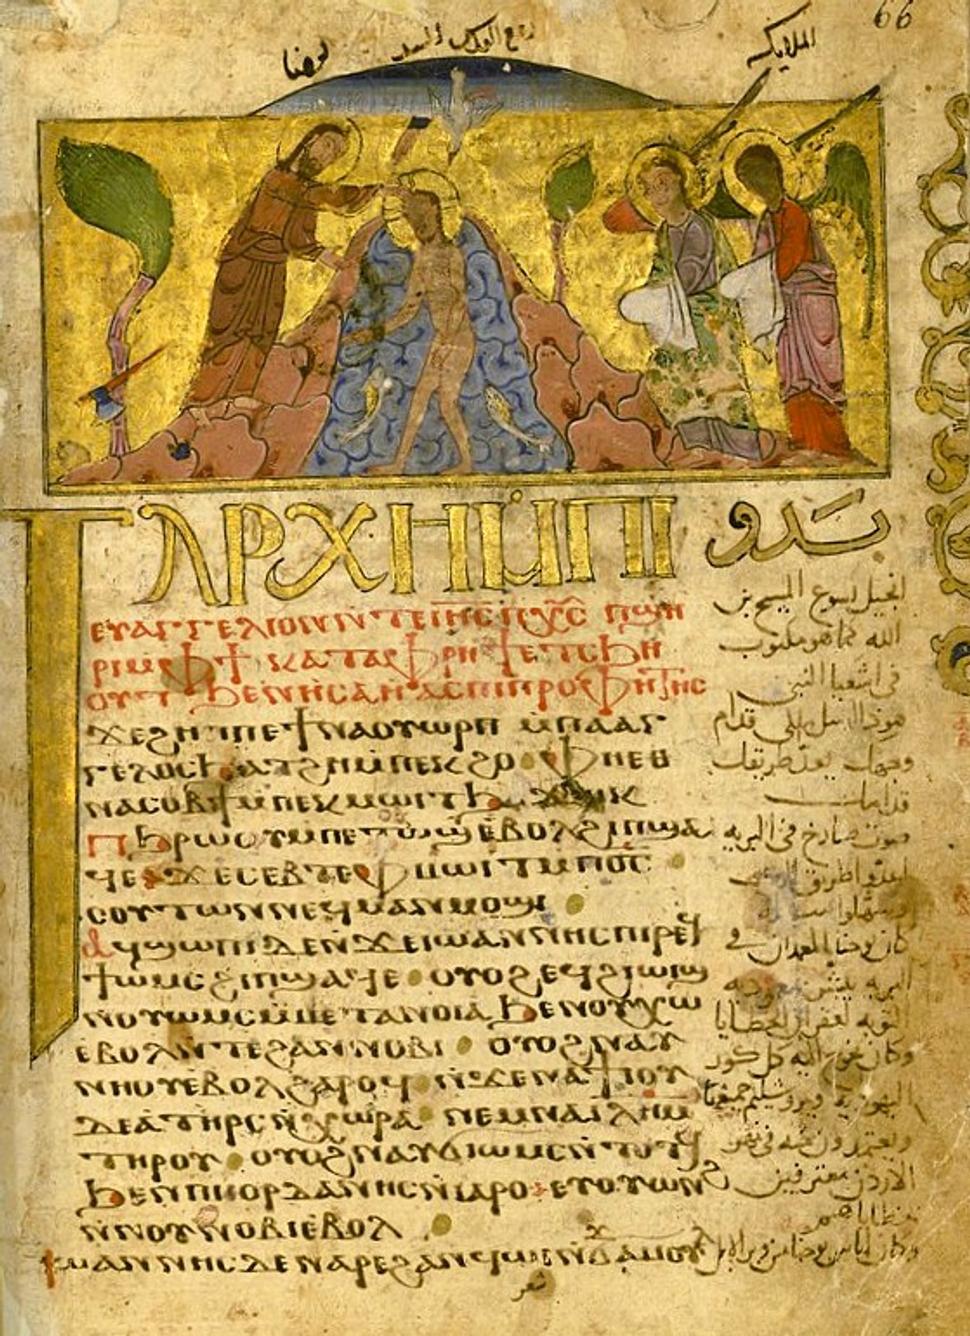 66
يوحنا
روح القدس
الملايكه
ⲦⲀⲢⲬⲎⲘ̀ⲠⲒ
ⲉⲩⲁⲅⲅⲉⲗⲓⲟⲛⲛ̀ⲧⲉⲓⲏ̅ⲥ̅ⲡⲭ̅ⲥ̅ ⲡϣⲏ
ⲣⲓⲙ̀ⲫϯ ⲕⲁⲧⲁⲫⲣⲏϯⲉⲧⲥϧⲏ
ⲟⲩⲧ ϧⲉⲛⲏⲥⲁⲏⲁⲥⲡⲓⲡⲣⲟⲫⲏⲧⲏⲥ
ϫⲉϩⲏⲡⲡⲉϯⲛⲁⲟⲩⲱⲣⲡ ⲙ̀ⲡⲁⲁⲅ
ⲅⲉⲗⲟⲥϧⲁⲧϩⲏⲙ̀ⲡⲉⲕϩⲟ ⲫⲏⲉⲑ
ⲛⲁⲥⲟⲃϯⲙ̀ⲡⲉⲕⲙⲱⲓⲧ
ⲡϧⲣⲱⲟⲩⲙ̀ⲡⲉⲧⲱϣⲉ̀ⲃⲟⲗϩⲓⲡϣⲁ
ϥⲉ ϫⲉⲥⲉⲃⲧⲉⲫⲙⲱⲓⲧⲙ̀ⲡϭ̅ⲥ̅
ⲥⲟⲩⲧⲱⲛⲛⲉϥⲙⲁⲛⲙⲟϣⲓ
ⲁϥϣⲱⲡⲓⲇⲉⲛϫⲉⲓⲱⲁⲛⲛⲏⲥⲡⲓⲣⲉϥ
ϯⲱⲙⲥϩⲓⲡϣⲁϥⲉ ⲟⲩⲟϩⲉϥϩⲓⲱⲓϣ
ⲛⲟⲩⲱⲙⲥⲙ̀ⲙⲉⲧⲁⲛⲟⲓⲁ ϧⲉⲛⲟⲩⲭⲱ
ⲉⲃⲟⲗⲛ̀ⲧⲉϩⲁⲛⲛⲟⲃⲓ ⲟⲩⲟϩⲛⲁⲩ
ⲛⲏⲟⲩⲉ̀ⲃⲟⲗϩⲁⲣⲟϥ ⲛ̀ϫⲉⲛⲁϯⲓⲟⲩ
ⲇⲉⲁⲧⲏⲣⲥⲛ̀ⲭⲱⲣⲁ ⲛⲉⲙⲛⲁⲓⲗⲏⲙ
ⲧⲏⲣⲟⲩ ⲟⲩⲟϩⲛⲁⲩϭⲓⲱⲙⲥⲛ̀ⲧⲟⲧϥ
ϧⲉⲛⲡⲓⲓⲟⲣⲇⲁⲛⲏⲥⲛ̀ⲓⲁⲣⲟ ⲉⲩⲟⲩⲱⲛϩ
ⲛⲛⲟⲩⲛⲟⲃⲓⲉ̀ⲃⲟⲗ
ⲓⲱⲁⲛⲛⲏⲥⲇⲉⲛⲁⲣⲉϩⲁⲛϥⲱⲓⲛ̀ϭⲁⲙⲟⲩⲗ
بدو
انجيل يسوع المسيح بن
الله كما هو مكتوب
في اشعيا النبي
هوذا قدام
وجهك يعد طريقك
قدامك
صوت صارخ في البريه
اعدوا طريق
وسهلوا
كان يوحنا المعمدان في
البريه يبشر بمعموديه
التوبه لغفران الخطايا
وكان يخرج اليه كل كور
اليهوديه ويروشليم جميعها
ويعتمدون منه في نهر
الاردن معترفين
بخطاياهم
وكان لباس يوحنا من وبر الابل
شعر